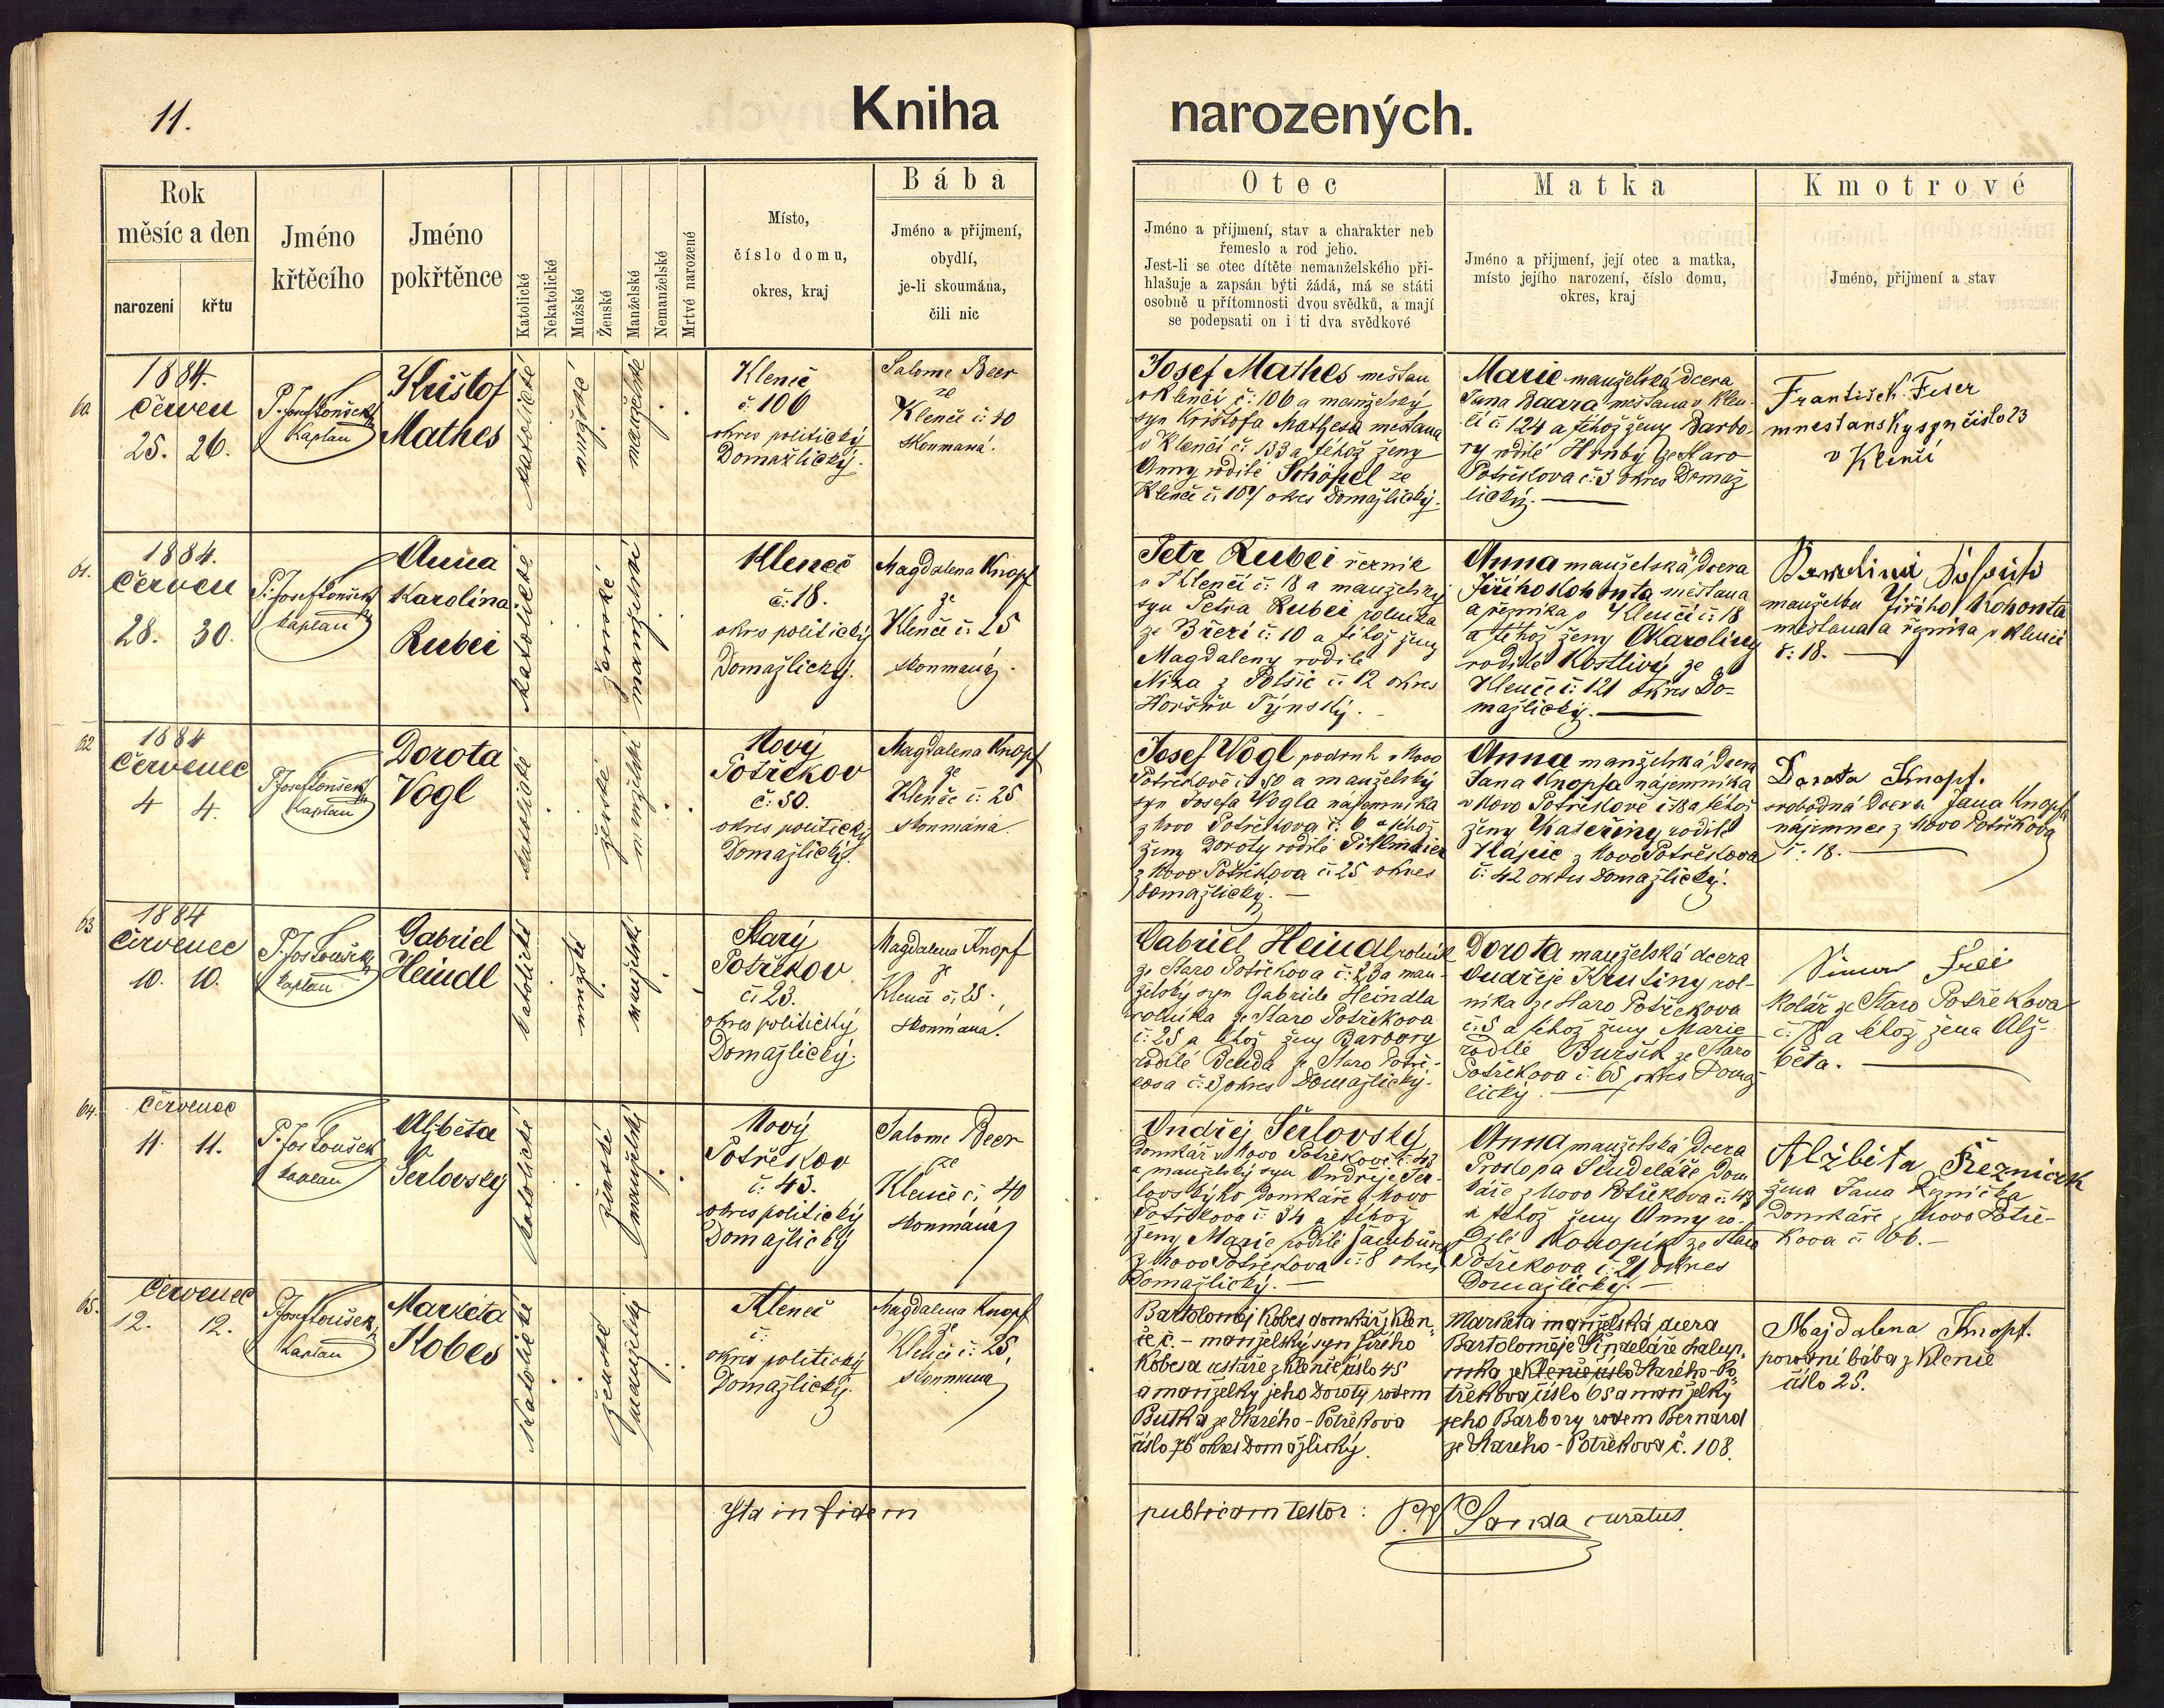 11.
Kniha
narozených.
Rok
měsíc a den
narození
křtu
Jméno
křtěcího
Jméno
pokřtěnce
Katolické
Nekatolické
Mužské
Ženské
Manželské
Nemanželské
Mrtvé narozené
Místo,
číslo domu,
okres, kraj
Bába
Jméno a přijmení,
obydlí,
je-li skoumána,
čili nic
Otec
Jméno a přijmení, stav a charakter neb
řemeslo a rod jeho.
Jest-li se otec dítěte nemanželského při-
hlašuje a zapsán býti žádá, má se státi
osobně u přítomnosti dvou svědků, a mají
se podepsati on i ti dva svědkové
Matka
Jméno a přijmení, její otec a matka,
místo jejího narození, číslo domu,
okres, kraj
Kmotrové
Jméno, přijmení a stav
60
1884.
Červen
25. 26.
P. Josef Loušek
Kaplan
Krištof
Mathes
katolické
mužské
manželské
Kleneč
č: 106
okres politický
Domažlický.
Salome Beer
ze
Klenče č: 40
skoumaná.
Josef Mathes mešťan
v Klenčí č: 106 a manželský
syn Krištofa Mathesa mešťana
v Klenčí č: 133 a téhož ženy
Anny rodilé Schöpel ze
Klenče č: 107 okres Domažlický.
Marie manželská dcera
Jana Baara mešťana v Klen-
čí č 124 a téhož ženy Barbo-
ry rodilé Hrubý ze Staro
Potřekova č: 3 okres Domaž
lický.
František Feser
mnestanský syn čislo 23
v Klenčí
61.
1884.
Červen
28. 30.
P. Josef Loušek
kaplan
Anna
Karolina
Rubei
katolické
ženské
manželské
Kleneč
č: 18.
okres politický
Domažlický.
Magdalena Knopf
ze
Klenče č: 25
skoumaná.
Petr Rubei řezník
v Klenčí č: 18 a manželský
syn Petra Rubei rolníka
ze Březí č: 10 a téhož ženy
Magdaleny rodilé
z Polžic č: 12 okres
Horšův Týnský.
Anna manželská dcera
Jiřího Kohouta mešťana
a řezníka v Klenčí č: 18
a téhož ženy Karoliny
rodilé Kostlivý ze
Klenče č: 121 okres Do-
mažlický.
manželka Jiřího Kohouta
mešťana a řezníka v Klenčí
č: 18.
62
1884
Červenec
4 4.
P. Josef Loušek
Kaplan
Dorota
Vogl
katolické
ženské
manželské
Nový
Potřekov
č: 50.
okres politický
Domažlický.
Magdalena Knopf
ze
Klenče č: 25
skoumána.
Josef Vogl podruh v Novo
Potřekově č: 50 a manželský
syn Josefa Vogla nájemníka
z Novo Potřekova č. 6 a téhož
ženy Doroty rodilé
z Novo Potřekova č: 25 okres
Domažlický. —
Anna manželská dcera
Jana Knopfa nájemníka
v Novo Potřekově č: 18 a téhož
ženy Kateřiny rodilé
Hájic z Novo Potřekova
č: 42 okres Domažlický.
Dorota Knopf.
svobodná dcera Jana Knopfa
nájemnce z Novo Potřekova
č: 18.
63
1884
Červenec
10. 10.
P. Jos Loušek
kaplan
Gabriel
Heindl
katolické
mužské
manželské
Starý
Potřekov
č: 23.
okres politický
Domažlický.
Magdalena Knopf
ze
Klenče č. 25.
skoumaná.
Gabriel Heindl rolník
ze Staro Potřekova č: 23 a man-
želský syn Gabriele Heindla
rolníka ze Staro Potřekova
č: 25 a téhož ženy Barbory
rodilé Benda ze Staro Potře-
kova č: 3 okres Domažlický.
Dorota manželská dcera
Ondřeje Krutiny rol-
níka ze Staro Potřekova
č. 5 a téhož ženy Marie
rodilé Buršík ze Staro
Potřekova č: 65 okres Domaž
lický.
Simon Frei
Kolář ze Staro Potřekova
č: 78 a téhož žena Alž-
běta.
64.
Červenec
11. 11.
P. Jos Loušek
kaplan
Alžběta
Šerlovský
katolické
ženské
manželské
Nový
Potřekov
č: 43.
okres politický
Domažlický
Salome Beer
ze
Klenče č: 40
skoumána
Ondřej Šerlovský
domkář v Novo Potřekově č: 43
a manželský syn Ondřeje Šer-
lovského domkáře z Novo
Potřekova č: 34 a téhož
ženy Marie rodilé
z Novo Potřekova č: 8 okres
Domažlický. —
Anna manželská dcera
Prokopa Šindeláře dom
káře z Novo Potřekova č. 43
a téhož ženy Anny ro-
dilé Konopík ze Staro
Potřekova č: 21 okres
Domažlický. —
Alžběta Řezniček
žena Jana Řezníčka
Domkáře z Novo Potře-
kova č 66. —
65.
Červenec
12. 12.
P. Josef Loušek
kaplan
Markéta
Kobes
Katolické
ženské
manželské
Kleneč
č:
okres politický
Domažlický.
Magdalena Knopf
ze
Klenče č: 25,
skoumána
Bartoloměj Kobes domkář z Klen-
če č. – manželský syn Jiřího
Kobesa cestáře z Klenče číslo 45
a manželky jeho Doroty rodem
Butka ze Starého-Potřekova
číslo 76 okres Domažlický.
Markéta manželská dcera
Bartoloměje Šindeláře chalup-
níka ze Klenče číslo Starého-Po-
třekova číslo 65 a manželky
jeho Barbory rodem Bernard
ze Starého-Potřekova č. 108.
Majdalena Knopf.
porodní bába z Klenče
číslo 25.
Ita in fidem
publicam testor: P. W Sanda curatus.